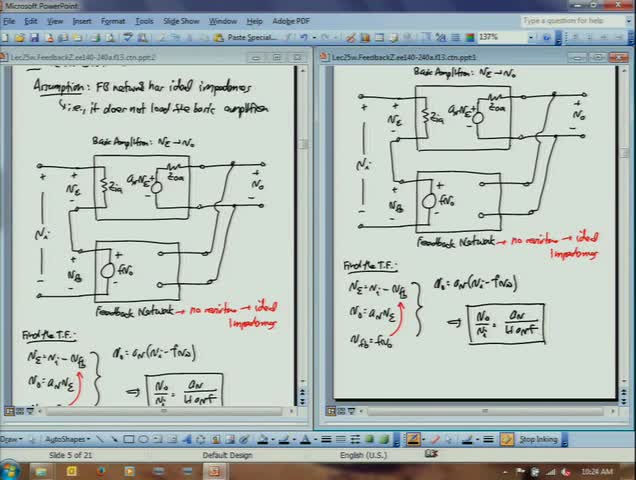 Microsoft PowerPoint
File Edit View Insert Format Tools Slide Show Window Help Adobe PDF
Type a question for help
Paste Special... 137%
Lec25w.FeedbackZ.ee140-240a.f13.ctn.ppt:2
Assumption: FB network has ideal impedances
i.e., it does not load the basic amplifier
Basic Amplifier: Nε → No
+ + + +
Nε Zia aNNε Zoa No
Ni
Nfb fNo
Feedback Network → no resistors → ideal
Impedances
Find the T.F.:
Nε = Ni - Nfb
No = aN(Ni - fNo)
No = aNNε
⇒ No/Ni = aN/(1+aNf)
Lec25w.FeedbackZ.ee140-240a.f13.ctn.ppt:1
Basic Amplifier: Nε → No
+ + + +
Nε Zia aNNε Zoa No
Ni
Nfb fNo
Feedback Network → no resistors → ideal
Impedances
Find the T.F.:
Nε = Ni - Nfb
No = aN(Ni - fNo)
No = aNNε
⇒ No/Ni = aN/(1+aNf)
Nfb = fNo
Draw AutoShapes Stop Inking
Slide 5 of 21 Default Design English (U.S.)
10:24 AM